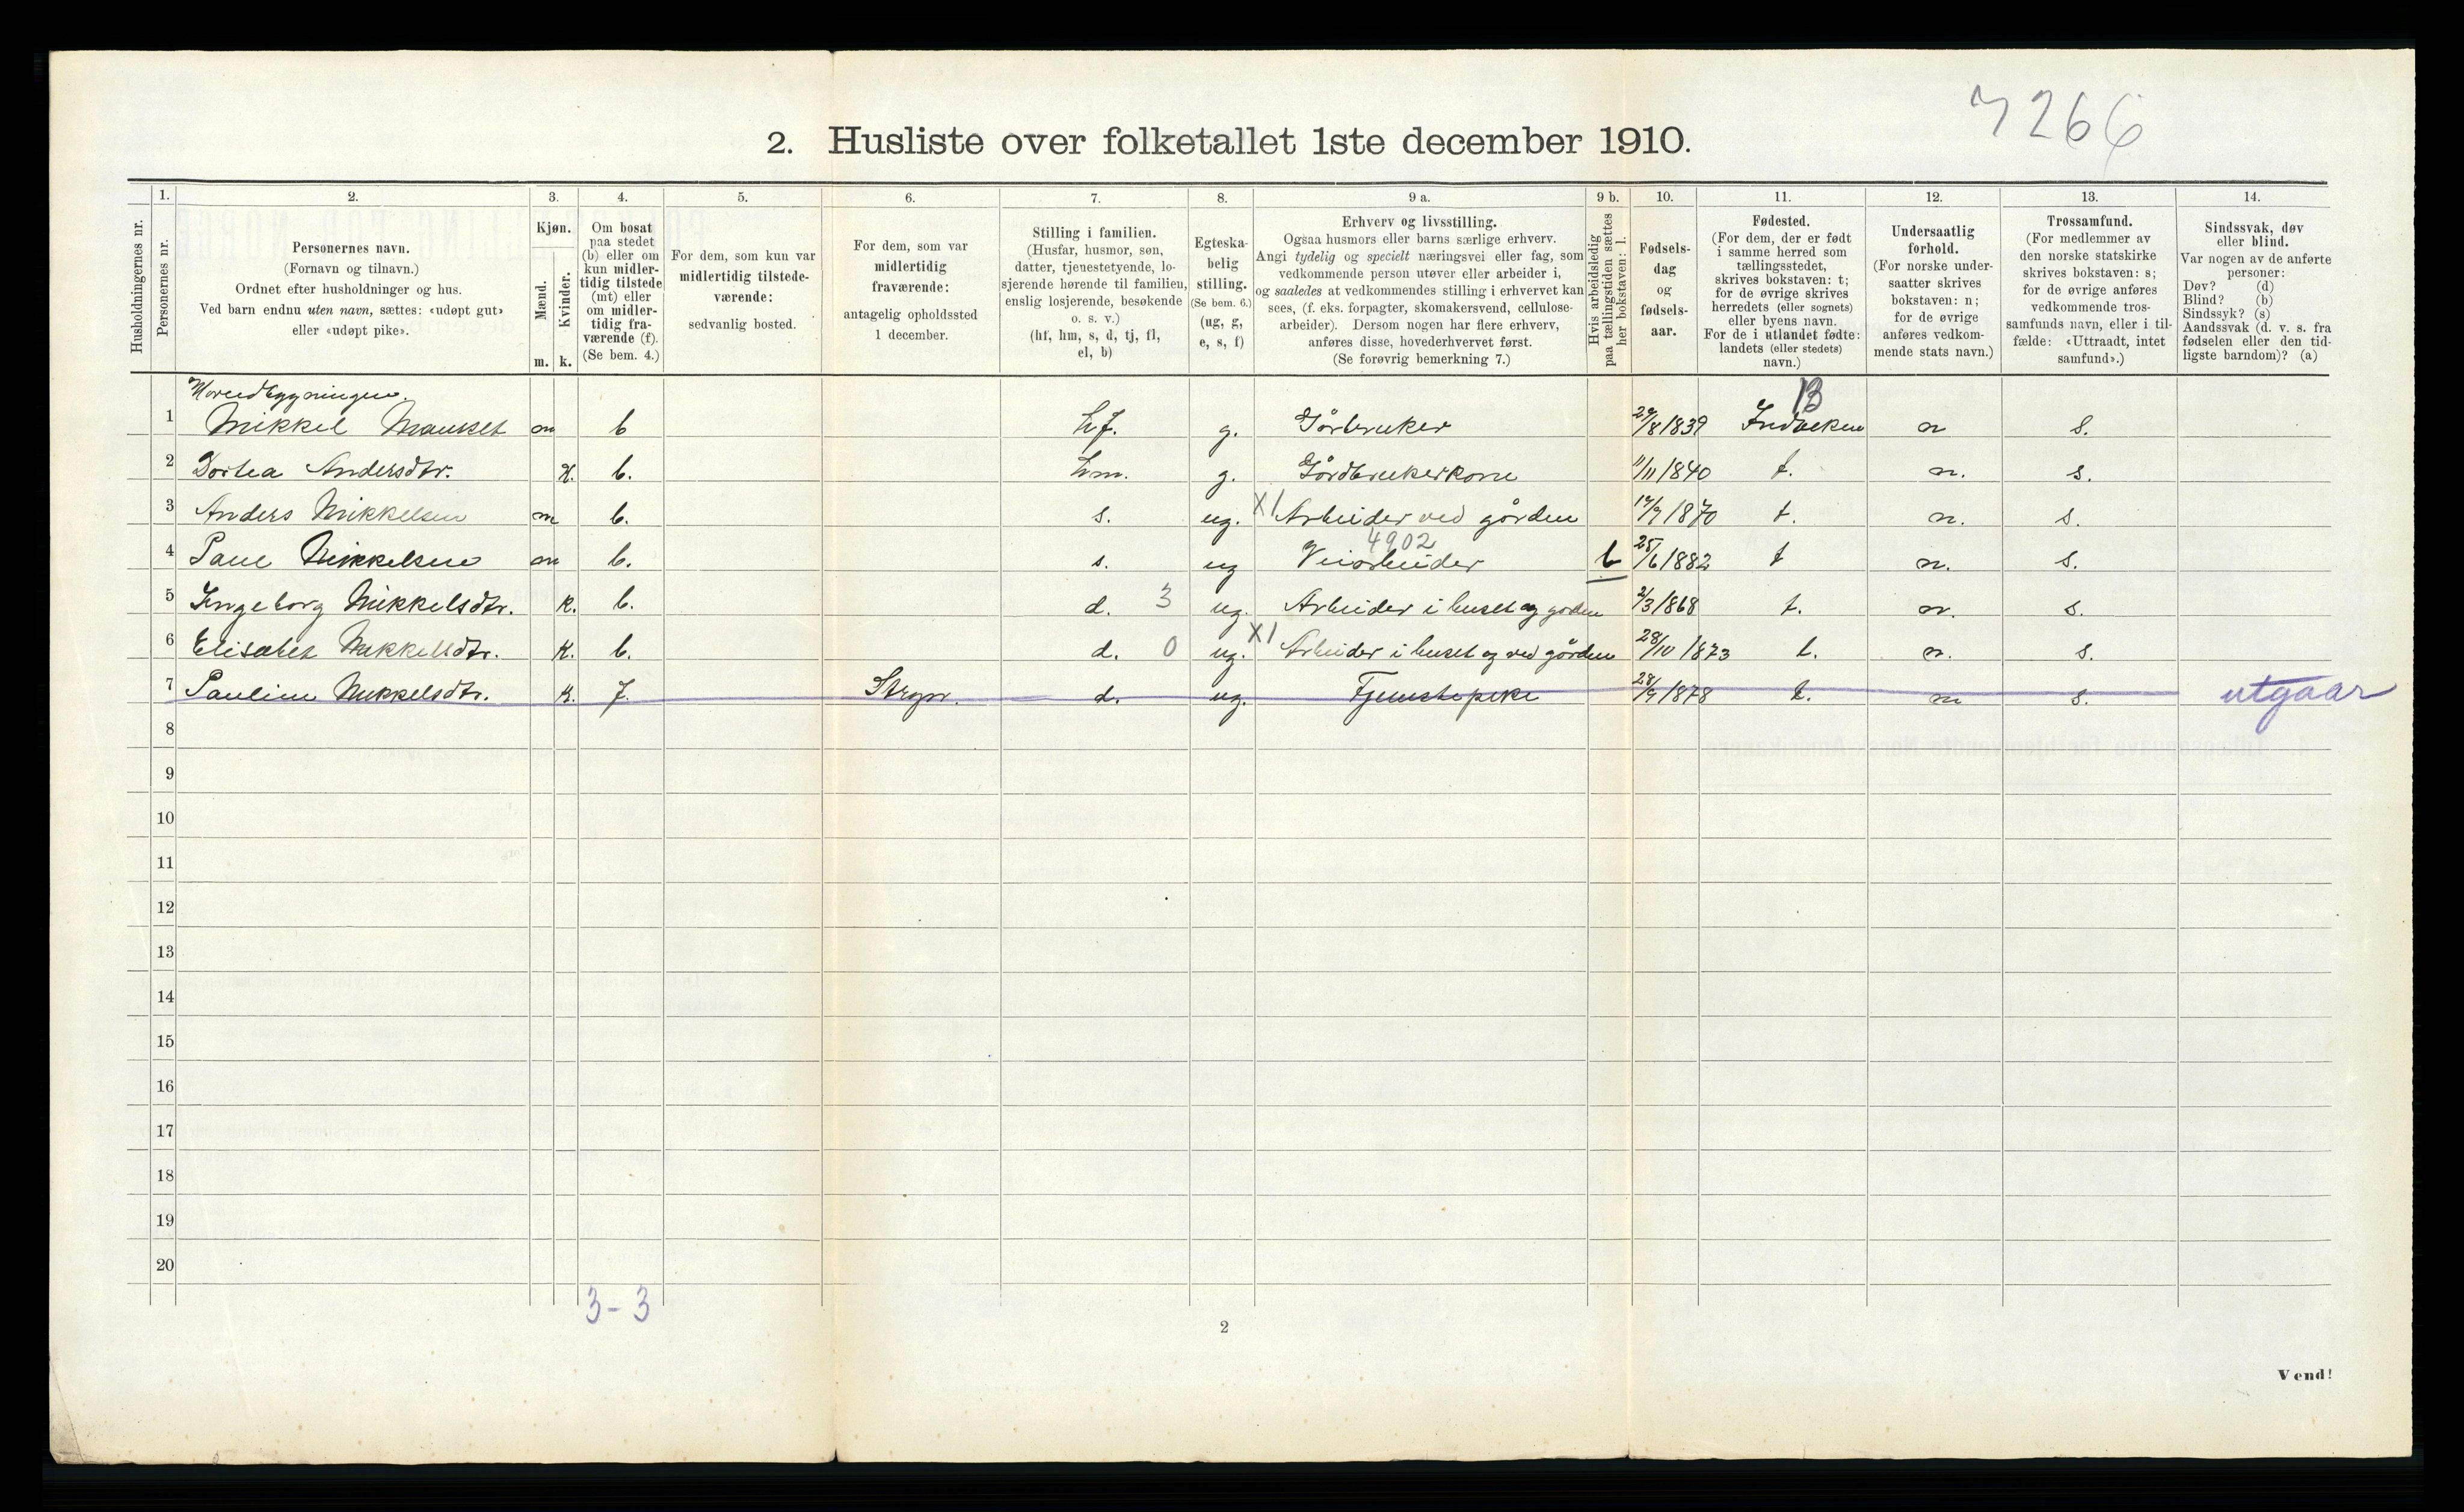 7266
2. Husliste over folketallet 1ste december 1910.
1. 2. 3. 4. 5. 6. 7. 8. 9 a. 9 b. 10. 11. 12. 13. 14.
Husholdningernes nr.
Personernes nr.
Personernes navn.
(Fornavn og tilnavn.)
Ordnet efter husholdninger og hus.
Ved barn endnu uten navn, sættes: «udøpt gut»
eller «udøpt pike».
Kjøn.
Mænd.
Kvinder.
m. k.
Om bosat
paa stedet
(b) eller om
kun midler-
tidig tilstede
(mt) eller
om midler-
tidig fra-
værende (f).
(Se bem. 4.)
For dem, som kun var
midlertidig tilstede-
værende:
sedvanlig bosted.
For dem, som var
midlertidig
fraværende:
antagelig opholdssted
1 december.
Stilling i familien.
(Husfar, husmor, søn,
datter, tjenestetyende, lo-
sjerende hørende til familien,
enslig losjerende, besøkende
o. s. v.)
(hf, hm, s, d, tj, fl,
el, b)
Egteska-
belig
stilling.
(Se bem. 6.)
(ug, g,
e, s, f)
Erhverv og livsstilling.
Ogsaa husmors eller barns særlige erhverv.
Angi tydelig og specielt næringsvei eller fag, som
vedkommende person utøver eller arbeider i,
og saaledes at vedkommendes stilling i erhvervet kan
sees, (f. eks. forpagter, skomakersvend, cellulose-
arbeider). Dersom nogen har flere erhverv,
anføres disse, hovederhvervet først.
(Se forøvrig bemerkning 7.)
Hvis arbeidsledig
paa tællingstiden sættes
her bokstaven: l.
Fødsels-
dag
og
fødsels-
aar.
Fødested.
(For dem, der er født
i samme herred som
tællingsstedet,
skrives bokstaven: t;
for de øvrige skrives
herredets (eller sognets)
eller byens navn.
For de i utlandet fødte:
landets (eller stedets)
navn.)
Undersaatlig
forhold.
(For norske under-
saatter skrives
bokstaven: n;
for de øvrige
anføres vedkom-
mende stats navn.)
Trossamfund.
(For medlemmer av
den norske statskirke
skrives bokstaven: s;
for de øvrige anføres
vedkommende tros-
samfunds navn, eller i til-
fælde: «Uttraadt, intet
samfund».)
Sindssvak, døv
eller blind.
Var nogen av de anførte
personer:
Døv? (d)
Blind? (b)
Sindssyk? (s)
Aandssvak (d. v. s. fra
fødselen eller den tid-
ligste barndom)? (a)
Hovedbygningen.
13
1 Mikkel Mauset m b hf. g. Gårbruker 29/8 1839 Indviken n s.
2 Dortea Andersdtr. k. b. hm. g. Gårdbrukerkone 11/11 1840 t. n. s.
3 Anders Mikkelsen m b. s. ug. X1 Arbeider ved gården 19/7 1870 t. n. s.
4902
4 Paul Mikkelsen m b. s. ug Veiarbeider l 25/6 1882 t n. s.
5 Ingeborg Mikkelsdtr. k. b. d. 3 ug. Arbeider i huset og gården 2/3 1868 t. n. s.
6 Elisabet Mikkelsdtr. k. b. d. 0 ug. X1 Arbeider i huset og ved gården 28/10 1873 t. n. s.
7 Pauline Mikkelsdtr. k. f. Stryn. d. ug. Tjenestepike 28/9 1878 t. n s. utgaar
8
9
10
11
12
13
14
15
16
17
18
19
20
3-3
2
Vend!